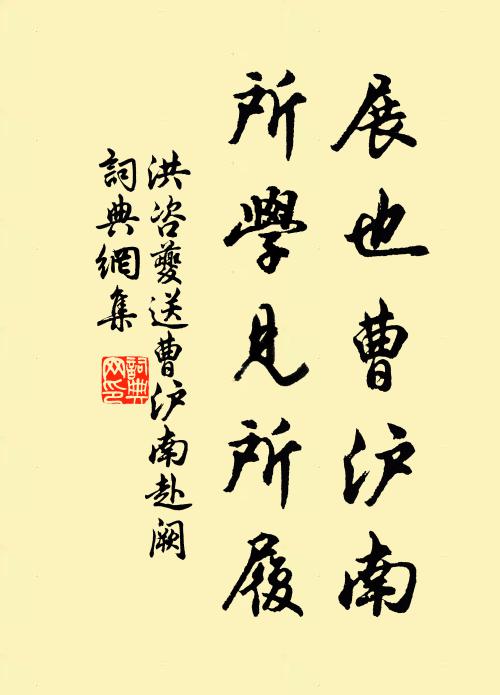 展也曹沪南
所學見所履
洪咨夔送曹沪南赴阙
詞典網集
詞典网印